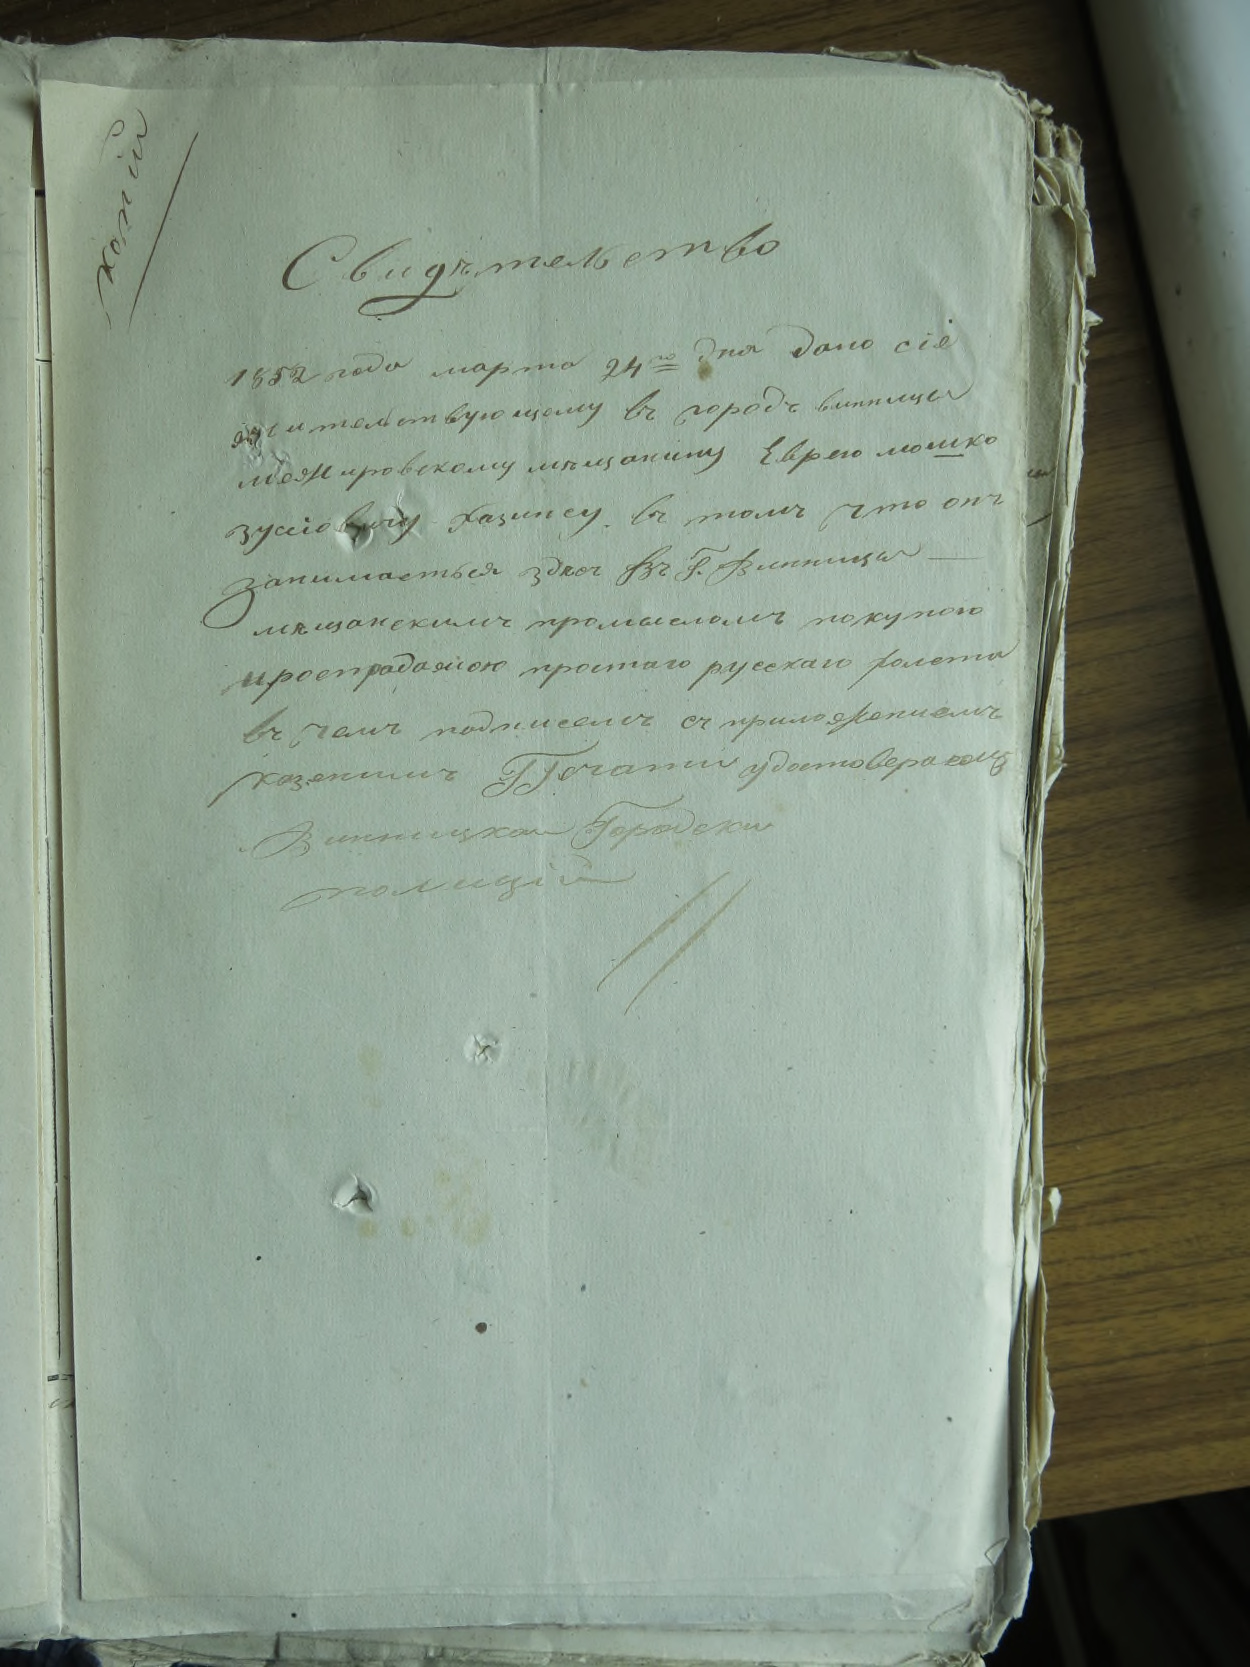 копій
Свидѣтельство
1852 года марта 24го дня дано сіе
жительствующему въ городѣ винницы
межировскому мѣщанину Еврею мошко
зусіовичу Хазинсу въ томъ что онъ
занимаеться здесъ Въ Г. Винницы —
мѣщанскимъ промысломъ покупкою
и роспродажою простаго русскаго холста
въ чемъ подписемъ съ приложениемъ
казенимъ Печати удостовераемъ
Винницкои Городски
полиціи